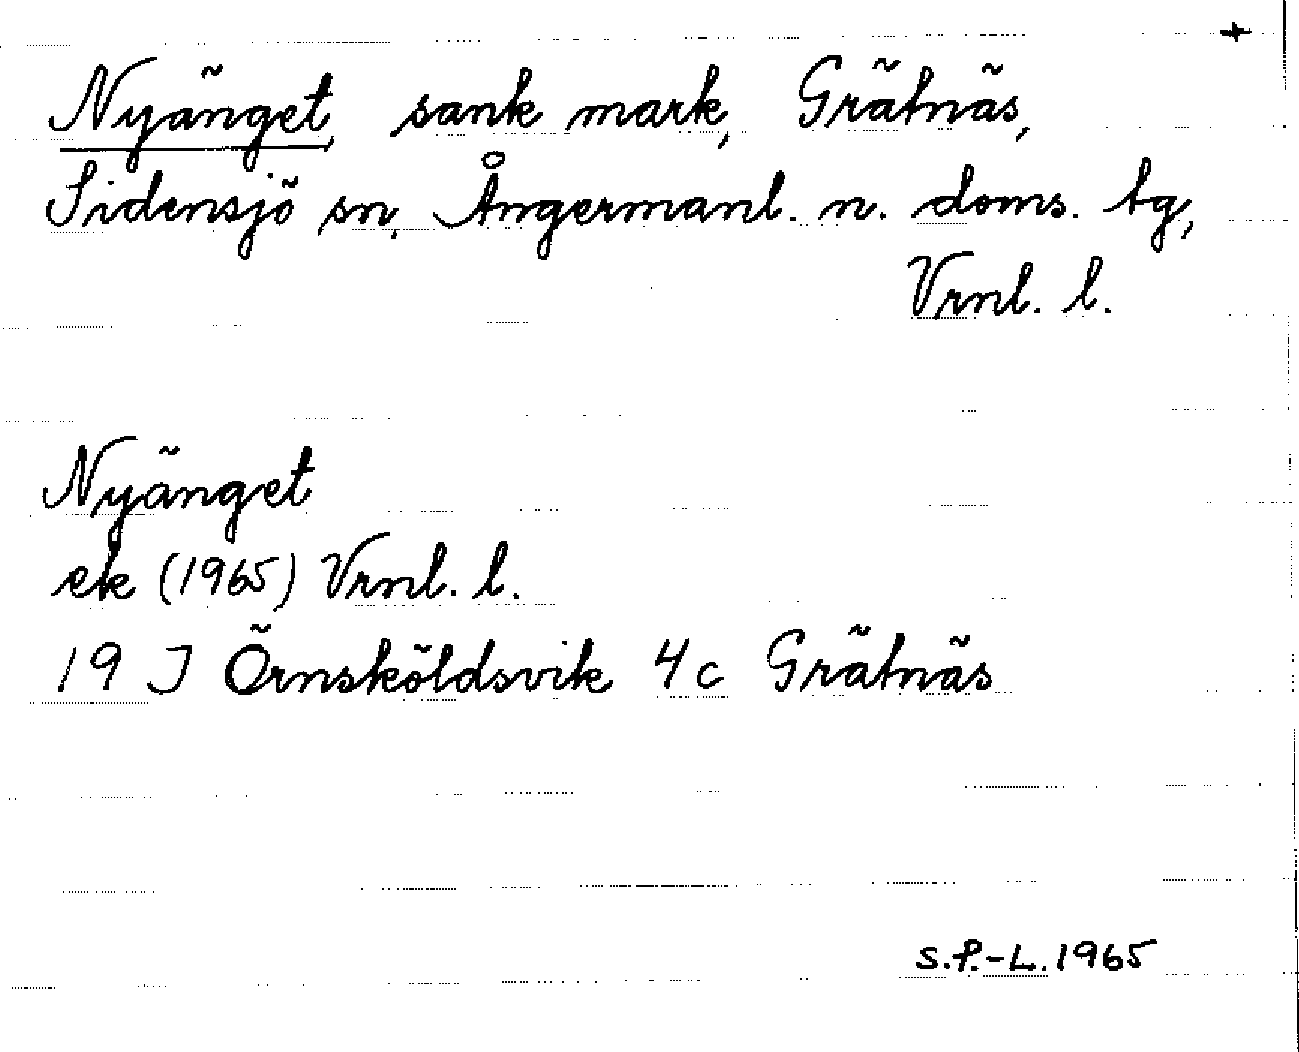 +
Nyänget, sank mark, Grätnäs,
Sidensjö sn, Ångermanl. n. doms. tg,
Vrnl. l.
Nyänget
ek (1965) Vrnl. l.
19 J Örnsköldsvik 4c Grätnäs
S.P.-L. 1965